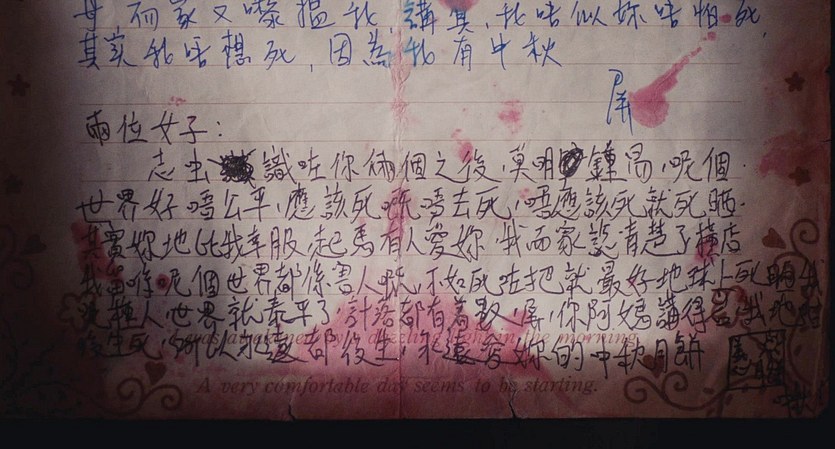 毋，而家又嚟搵我，講真，我唔似妳唔怕死，
其實我唔想死，因為我有中秋
屏
兩位女子：
志虫 識咗你倆個之後，莫明 鍾意，呢個
世界好唔公平，應該死嘅唔去死，唔應該死就死晒
其實妳地比我幸服，起馬有人愛妳，我而家諗清楚了橫店
我留喺呢個世界都係害人 不如死咗把就最好地球上死晒
種人，世界就泰平了，計落都有著數，屏，你阿媽講得 我地
後生死，所以永遠都後生，永遠愛妳的中秋月餅
morning.
A very comfortable day seems to be starting.